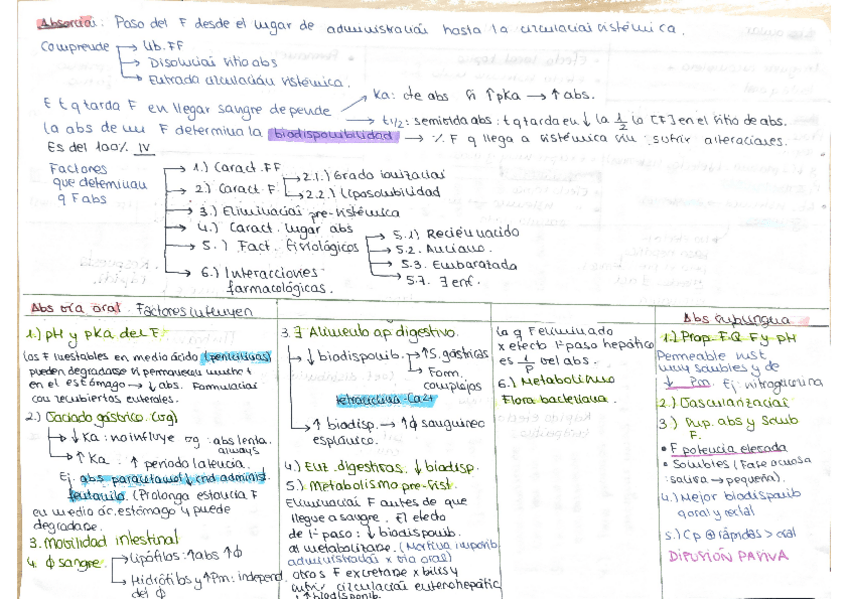 Absorción: Paso del F desde el lugar de administración hasta la circulación sistémica.
Comprende → lib. FF
→ Disolución sitio abs
→ Entrada circulación sistémica.
El tq tarda F en llegar sangre depende → Ka: cte abs si ↑pKa → ↑ abs.
→ t1/2: semivida abs: tq tarda en ↓ la 1/2 la [F] en el sitio de abs.
La abs de un F determina la biodisponibilidad → % F q llega a sistémica sin sufrir alteraciones.
Es del 100% IV
Factores que determinan q F abs
→ 1.) Caract. FF
→ 2.) Caract. F
→ 2.1.) Grado ionización
→ 2.2.) Liposolubilidad
→ 3.) Eliminación pre-sistémica
→ 4.) Caract. lugar abs
→ 5.) Fact. fisiológicos
→ 5.1) Recién nacido
→ 5.2. Anciano.
→ 5.3. Embarazada
→ 5.7. ∃ enf.
→ 6.) Interacciones farmacológicas.
Abs vía oral. Factores influyen
1.) pH y pKa del F.
Los F inestables en medio ácido (penicilinas)
pueden degradarse si permanecen mucho t
en el estómago → ↓ abs. Formulación
con recubiertos enterales.
2.) Vaciado gástrico. (vg)
→ ↓ Ka: no influye vg: abs lenta.
always
→ ↑ Ka: ↑ periodo latencia.
Ej: abs paracetamol ↓ cnd administ.
fentanilo. (Prolonga estancia F
en medio ác. estómago y puede
degradarse.
3. Movilidad intestinal
4. ϕ sangre. → Lipófilos: ↑abs ↑ϕ
→ Hidrófilos y ↑Pm: independ.
del ϕ
3. ∃ Alimento ap digestivo.
→ ↓ biodisponib. → ↑S. gástricas
→ Form. complejos
tetraciclina-Ca2+
→ ↑ biodisp. → ↑ϕ sanguineo
esplácnico.
4.) Enz. digestivas. ↓ biodisp.
5.) Metabolismo pre-sist.
Eliminación F antes de que
llegue a sangre. El efecto
de 1º paso: ↓ biodisponib.
al metabolizarse. (Morfina
administrada x vía oral)
otros F excretarse x bilis y
sufrir circulación enterohepátic
↑ biodisponib.
la q F eliminado
x efecto 1º paso hepático
es 1/P vel abs.
6.) Metabolismo
Flora bacteriana.
Abs sublingual
1.) Prop. F.Q. F y pH
Permeable inst
muy solubles y de
↓ Pm. Ej: nitroglicerina
2.) Vascularización
3) Sup. abs y Solub
F.
• F potencia elevada
• Solubles (Fase acuosa
:saliva → pequeña).
4.) Mejor biodisponib
q oral y rectal
5.) Cp ⊕ rápidas > oral
DIFUSIÓN PASIVA